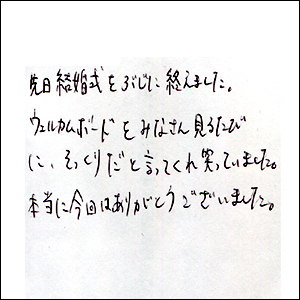 先日結婚式をぶじに終えました。
ウェルカムボードをみなさん見るたび
に、そっくりだと言ってくれ笑っていました。
本当に今回はありがとうございました。